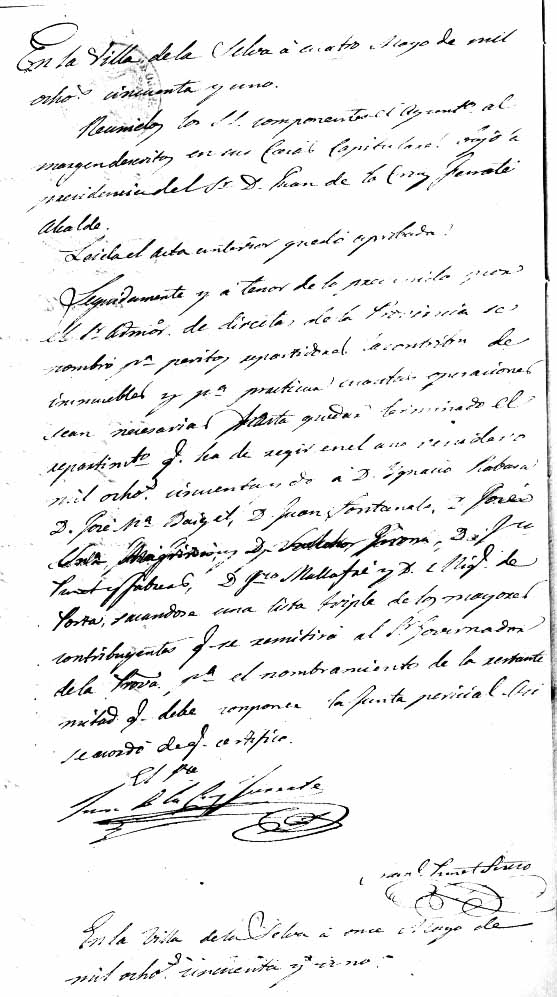 En la Villa de la Selva á cuatro Mayo de mil
ochos. cincuenta y uno.
Reunidos los SS. componentes el Ayunto. al
margen descritos en sus Casas Capitulares bajo la
presidencia del Sr. D. Juan de la Cruz Ferraté
Alcalde.
Leida el acta anterior quedó aprobada.
Seguidamente y á tenor de lo prevenido por
el Sr. Admor. de directas de la Provincia se
nombró pa. peritos repartidores la contribn. de
inmuebles y pa. practicar cuantas operaciones
sean necesarias hasta quedar terminado el
repartimto. q. ha de regir en el año venidero
mil ochos. cincuenta y do á D. Ignacio
D. José Ma. Baiget, D. Juan Fontanals, D. José
D.
Punet y Fabregas, D. Mallafré y D. Miql. de
Porta, sacandose una lista triple de los mayores
contribuyentes q. se remitirá al Sr. Governador
de la Prova. pa. el nombramiento de la restante
mitad q. debe componer la Junta pericial. Asi
se acordó de q. certifico.
El Pre
Juan de la Cruz Ferraté
Punet Srio
En la Villa de la Selva á once Mayo de
mil ochos. cincuenta y uno.